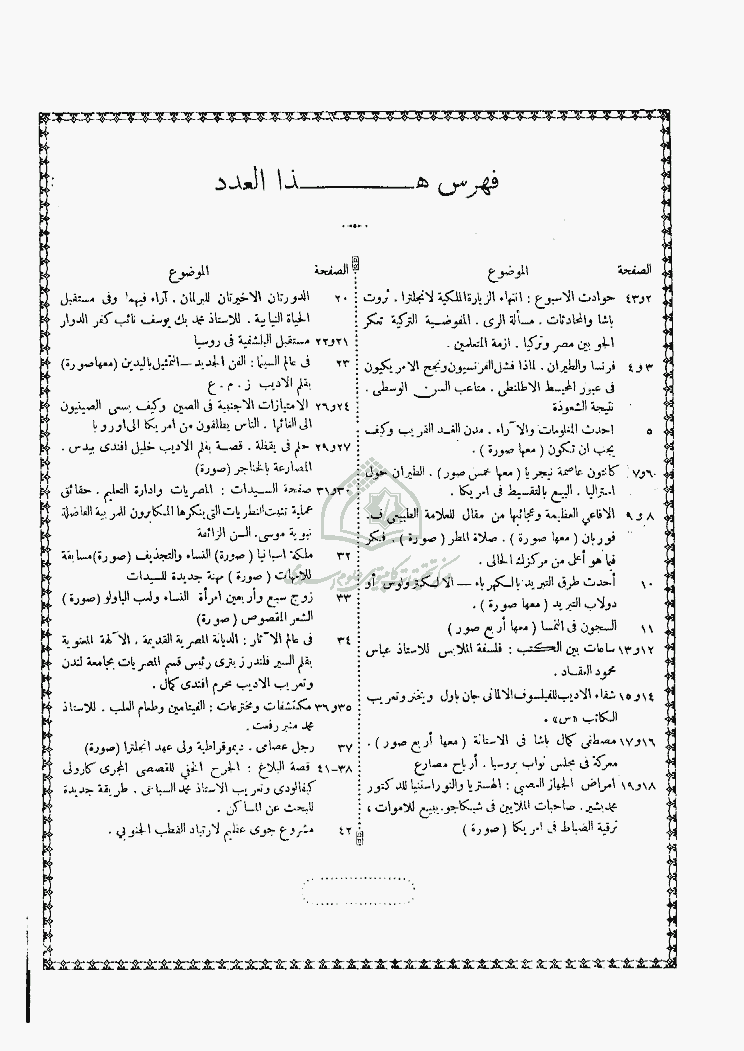 فهرس هذا العدد
الصفحة الموضوع
٢و٤٣ حوادث الاسبوع : انتهاء الزيارة الملكية لانجلترا . ثروت
باشا والمحادثات . مسألة الرى . المفوضية التركية تعكر
الجو بين مصر وتركيا . ازمة المتعلمين .
٣و٤ فرنسا والطيران . لماذا فشل الفرنسيون ونجح الامريكيون
فى عبور المحيط الاطلنطى . متاعب السن الوسطى .
نتيجة الشعوذة
٥ احدث المعلومات والآراء . مدن الغد القريب وكيف
يجب ان تكون ( معها صورة ) .
٦و٧ كانتون عاصمة نيجريا ( معها خمس صور ) . الطيران حول
استراليا . البيع بالتقسيط فى امريكا .
٨ و ٩ الافاعي العظيمة وعجائبها من مقال للعلامة الطبيعى ف.
فوربان ( معها صورة ) . صلاة المطر ( صورة ) . فكر
فيما هو أعلى من مركزك الحالى .
١٠ أحدث طرق التبريد بالكهرباء — الالكترولوس أو
دولاب التبريد ( معها صورة ) .
١١ السجون فى النمسا ( معها أربع صور )
١٢و١٣ ساعات بين الكتب : فلسفة الملابس للاستاذ عباس
محمود العقاد .
١٤و١٥ شفاء الاديب للفيلسوف الالمانى جان باول ريختر وتعريب
الكاتب «س» .
١٦و١٧ مصطفى كمال باشا فى الاستانة ( معها أربع صور ) .
معركة فى مجلس نواب بروسيا . أرباح مصارع
١٨و١٩ امراض الجهاز العصبى : الهستريا والنوراستنيا للدكتور
محمد بشير . صاحبات الملايين فى شيكاجو . بيبيع للاموات ،
ترقية الضباط فى امريكا ( صورة )
الصفحة الموضوع
٢٠ الدورتان الاخيرتان للبرلمان . آراء فيهما وفى مستقبل
الحياة النيابية . للاستاذ محمد بك يوسف نائب كفر الدوار
٢١و٢٢ مستقبل البلشفية فى روسيا
٢٣ فى عالم السينما : الفن الجديد — التمثيل باليدين (معها صورة)
بقلم الاديب ز . م . ع
٢٤و٢٦ الامتيازات الاجنبية فى الصين وكيف يسعى الصينيون
الى الغائها . الناس يطلقون من امريكا الى اوروبا
٢٧و٢٩ حلم فى يقظة . قصة بقلم الاديب خليل افندى بيدس .
المصارعة بالخناجر (صورة)
٣٠و٣١ صفحة السيدات : المصريات وادارة التعليم . حقائق
عملية تثبت النظريات التى ينكرها المكابرون للمربية الفاضلة
نبوية موسى . السن الزائفة
٣٢ ملكة اسبانيا ( صورة ) النساء والتجذيف (صورة) مسابقة
للامهات ( صورة ) مهنة جديدة للسيدات
٣٣ زوج سبع وأربعين امرأة النساء ولعب الباولو (صورة)
الشعر المقصوص (صورة)
٣٤ فى عالم الآثار : الديانة المصرية القديمة . الآلهة المعنوية
بقلم السير فلندرز بترى رئيس قسم المصريات بجامعة لندن
وتعريب الاديب محرم افندى كمال .
٣٥و٣٦ مكتشفات ومخترعات : الفيتامين وطعام العلب . للاستاذ
محمد منير رفعت .
٣٧ رجل عصامى . ديموقراطية ولى عهد انجلترا (صورة)
٣٨-٤١ قصة البلاغ : الجرح الخفى للقصصى المجرى كارولى
كيفالودى وتعريب الاستاذ محمد السباعى . طريقة جديدة
للبحث عن المساكن .
٤٢ مشروع جوى عظيم لارتياد القطب الجنوبى .